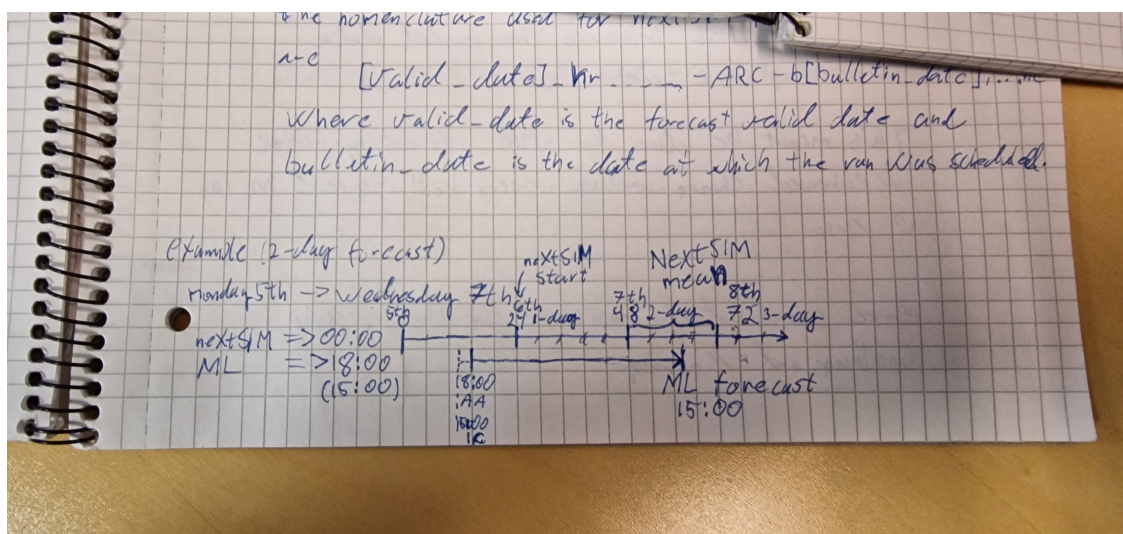 the nomenclature used for nextSIM
[valid_date]_hr ---- -ARC -b[bulletin_date]....nc
where valid-date is the forecast valid date and
bulletin_date is the date at which the run was scheduled.
example (2-day forecast)
nextSIM start
NextSIM mean
monday 5th -> Wednesday 7th
5th
6th
7th
8th
24 1-day
48 2-day
72 3-day
nextSIM => 00:00
ML => 18:00
(15:00)
18:00
AA
15:00
ML forecast
15:00